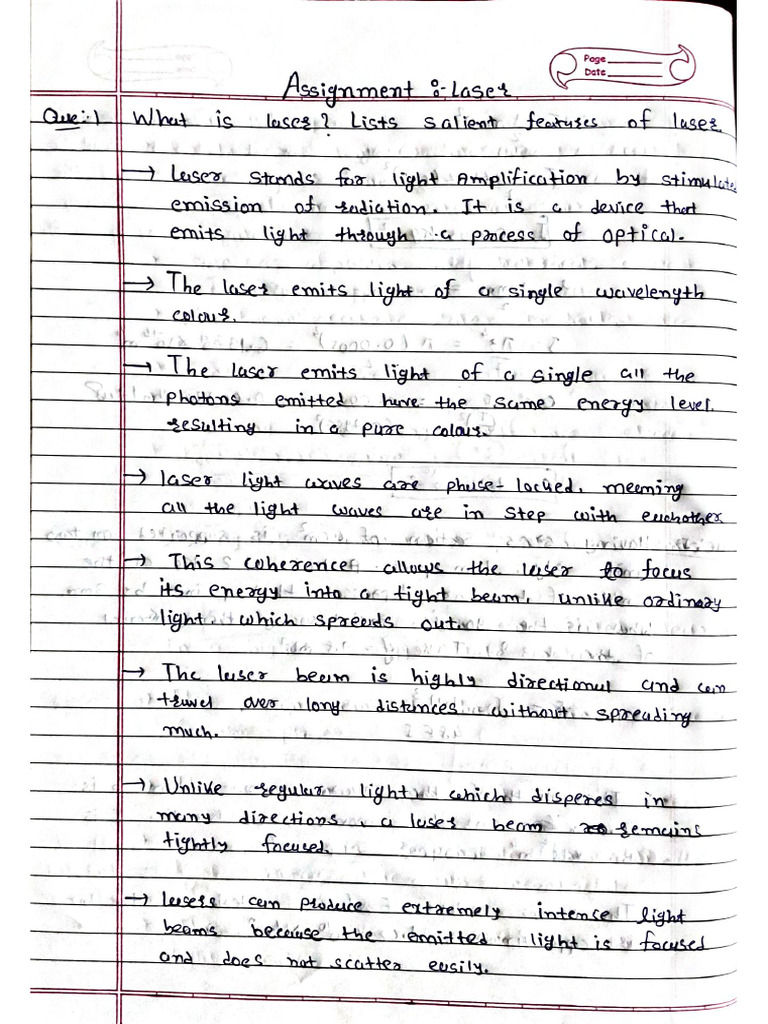 Page
Date
Assignment :- Laser
Que:1 What is laser? Lists salient features of laser
→ Laser stands for light Amplification by stimulate
emission of radiation. It is a device that
emits light through a process of optical.
→ The laser emits light of a single wavelength
colour.
→ The laser emits light of a single all the
photons emitted have the same energy level.
resulting in a pure colour.
→ laser light waves are phase-locked, meening
all the light waves are in step with eachother
→ This coherence allows the laser to focus
its energy into a tight beam. unlike ordinary
light, which spreeds out.
→ The laser beam is highly directional and can
travel over long distances without spreading
much.
→ Unlike regular light, which disperes in
many directions, a laser beam remains
tightly focused.
→ lasers can produce extremely intense light
beams because the emitted light is focused
and does not scatter easily.